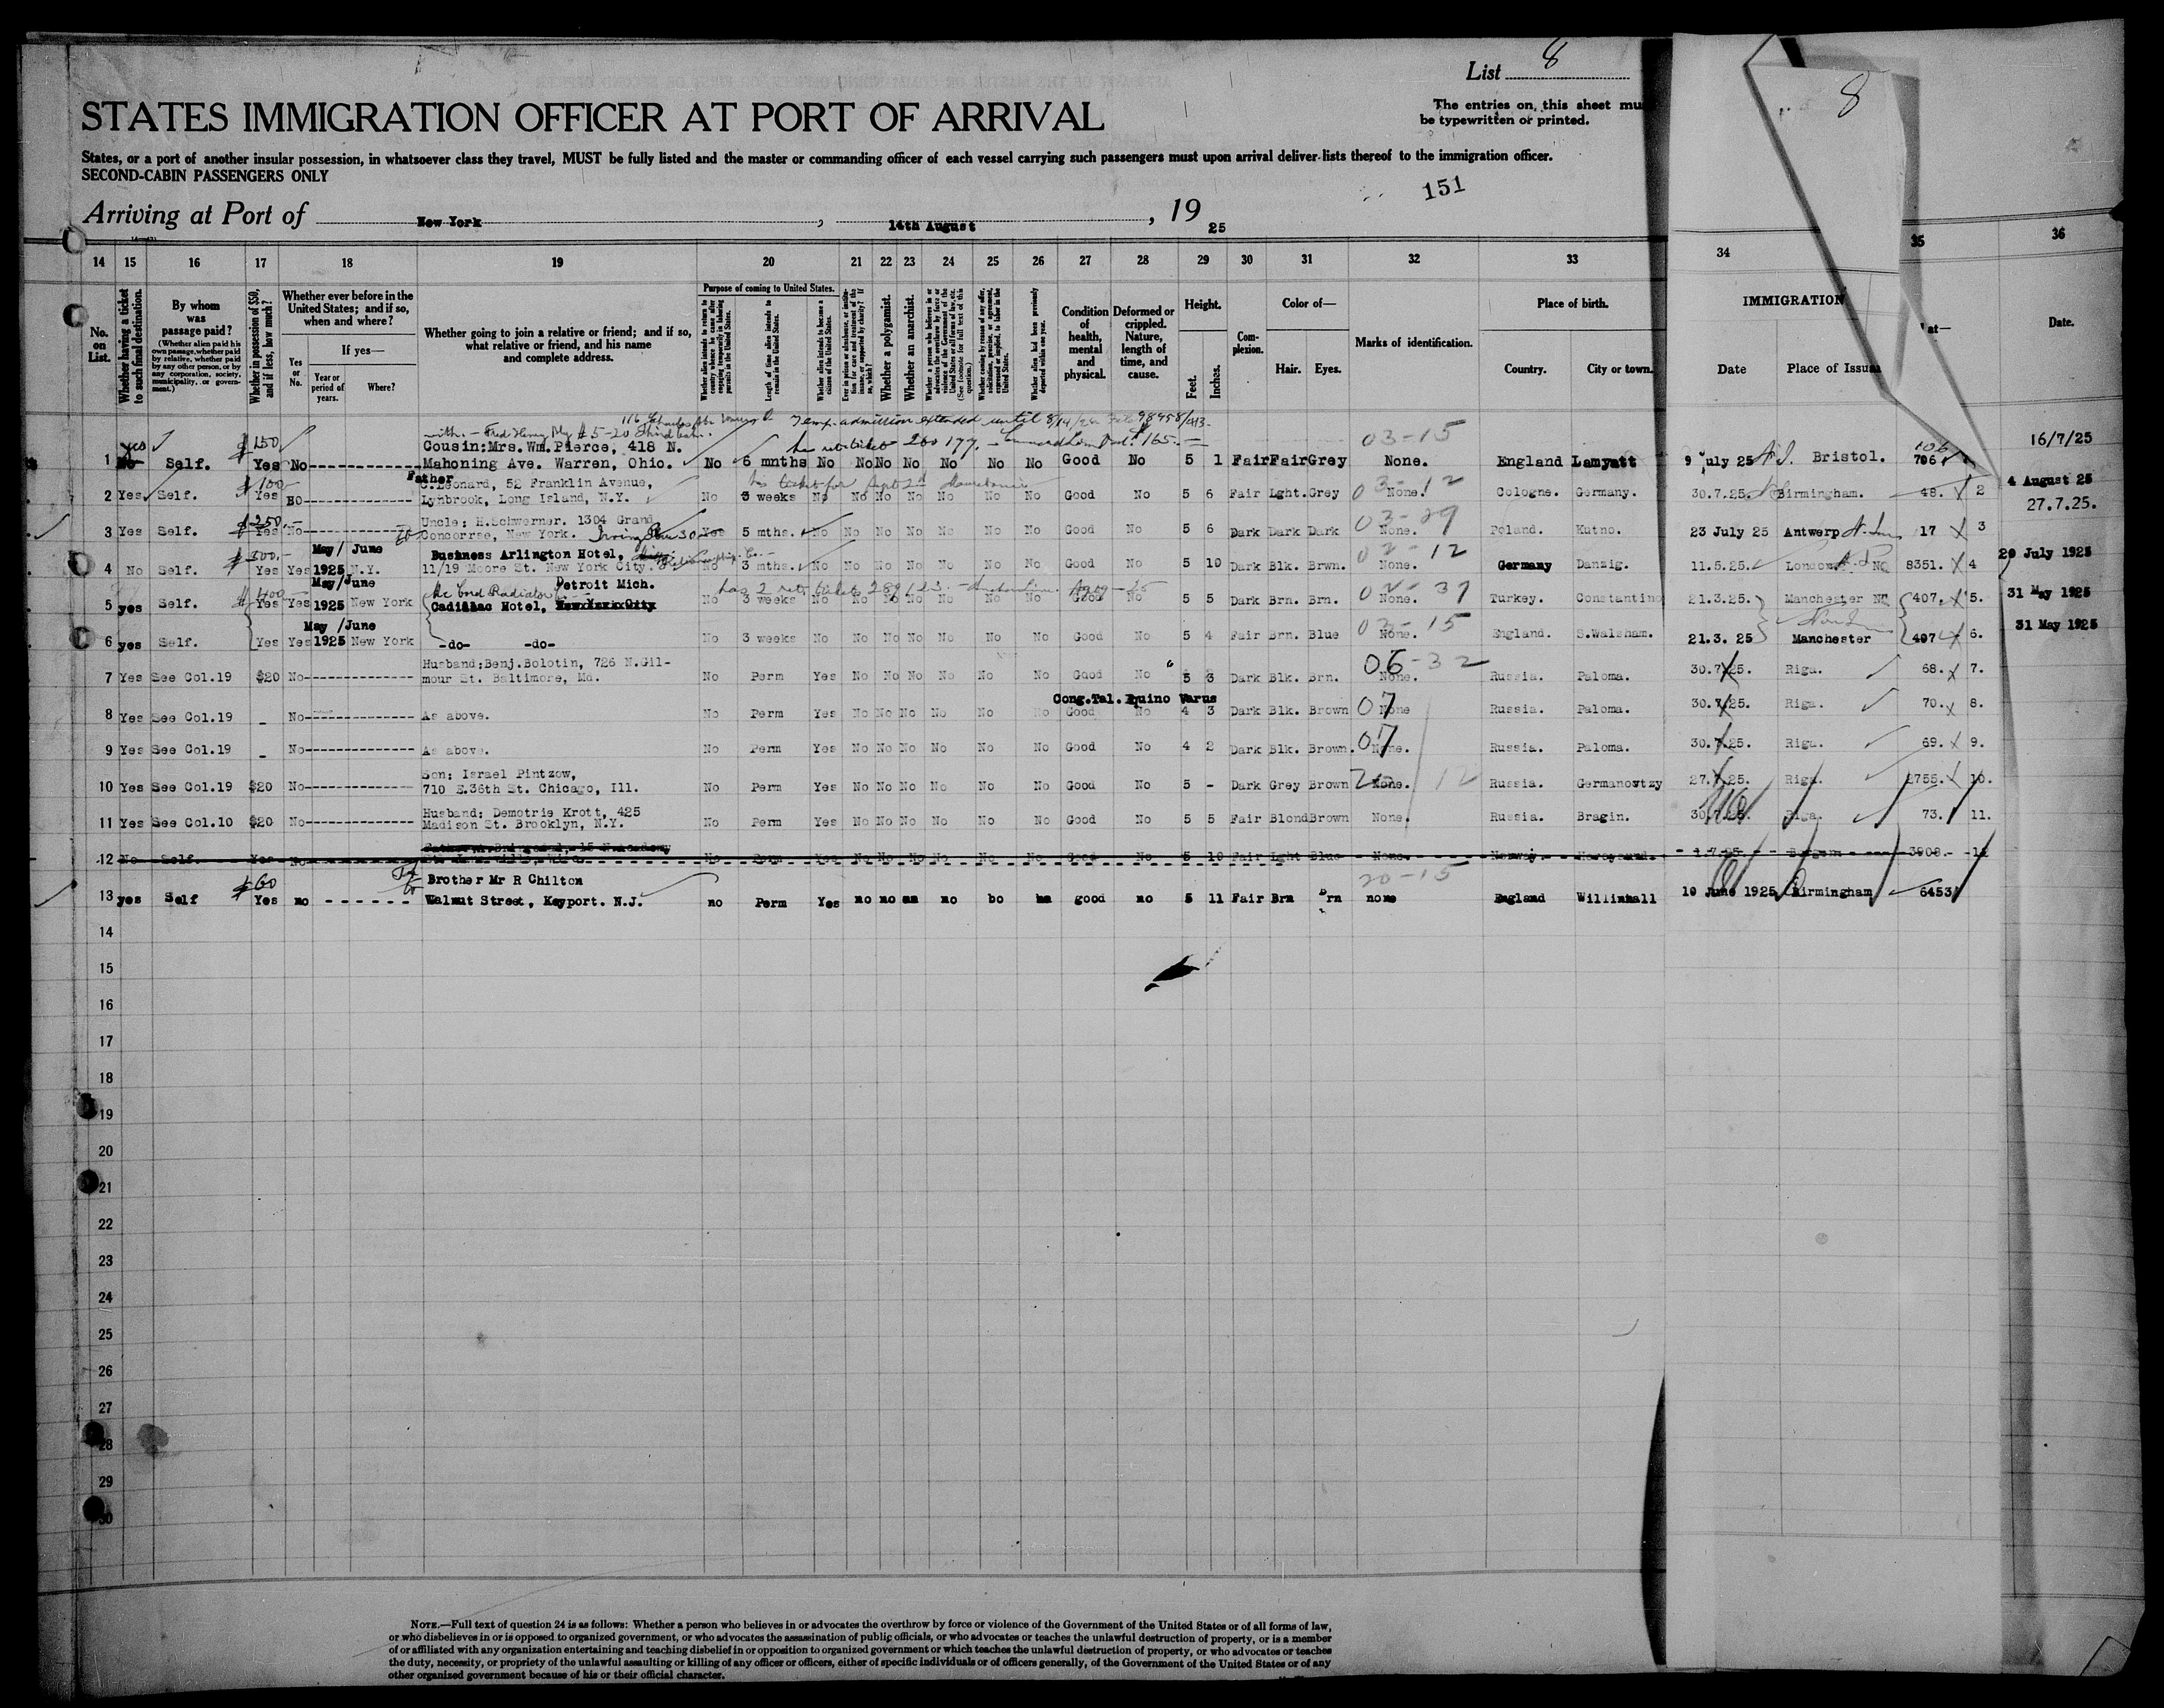 List 8
8
STATES IMMIGRATION OFFICER AT PORT OF ARRIVAL
The entries on this sheet mu
be typewritten or printed.
States, or a port of another insular possession, in whatsoever class they travel, MUST be fully listed and the master or commanding officer of each vessel carrying such passengers must upon arrival deliver lists thereof to the immigration officer.
SECOND-CABIN PASSENGERS ONLY
151
Arriving at Port of New York, 14th August, 1925
14 15 16 17 18 19 20 21 22 23 24 25 26 27 28 29 30 31 32 33 34 35 36
No. on List.
Whether having a ticket to such final destination.
By whom was passage paid?
(Whether alien paid his own passage, whether paid by relative, whether paid by any other person, or by any corporation, society, municipality, or government.)
Whether in possession of $50, and if less, how much?
Whether ever before in the United States; and if so, when and where?
Yes or No.
If yes—
Year or period of years.
Where?
Whether going to join a relative or friend; and if so, what relative or friend, and his name and complete address.
Purpose of coming to United States.
Length of time alien intends to remain in the United States.
Whether alien intends to become a citizen of the United States.
Whether a polygamist.
Whether an anarchist.
Condition of health, mental and physical.
Deformed or crippled. Nature, length of time, and cause.
Height.
Feet. Inches.
Complexion.
Color of—
Hair. Eyes.
Marks of identification.
Place of birth.
Country. City or town.
IMMIGRATION
Date Place of Issu
at—
Date.
Temp. admission extended until 8/14/26
yes $150 Cousin:Mrs.Wm.Pierce, 418 N. 03-15 106 16/7/25
1 No Self. Yes No Mahoning Ave. Warren, Ohio. No 6 mnths No No No No No No No Good No 5 1 Fair Fair Grey None. England Lamyatt 9 july 25 Bristol. 706
$100 Father C.Leonard, 52 Franklin Avenue, 03-12 4 August 25
2 Yes Self. Yes NO Lynbrook, Long Island, N.Y. No 3 weeks No No No No No No No Good No 5 6 Fair Lght. Grey None. Cologne. Germany. 30.7.25. Birmingham. 48. 2
$250 Uncle: H.Schwerner. 1304 Grand 03-29 27.7.25.
3 Yes Self. Yes No Concorrse, New York. Yes 5 mths. No No No No No No No Good No 5 6 Dark Dark Dark None. Poland. Kutno. 23 July 25 Antwerp 17 3
May/ June Business Arlington Hotel, 02-12 20 July 1925
4 No Self. Yes Yes 1925 N.Y. 11/19 Moore St. New York City. No 3 mths. No No No No No No No Good No 5 10 Dark Blk. Brwn. None. Germany Danzig. 11.5.25. London 8351. 4
$400 May/June Detroit Mich. 31 May 1925
5 yes Self. Yes Yes 1925 New York Cadillac Hotel, New York City No 3 weeks No No No No No No No Good No 5 5 Dark Brn. Brn. None. Turkey. Constantino 21.3.25. Manchester 407. 5.
May /June 03-15 31 May 1925
6 yes Self. Yes Yes 1925 New York -do- -do- No 3 weeks No No No No No No No Good No 5 4 Fair Brn. Blue None. England. S.Walsham. 21.3. 25 Manchester 407 6.
Husband:Benj.Bolotin, 726 N.Gil- 06-32
7 Yes See Col.19 $20 No mour St. Baltimore, Md. No Perm Yes No No No No No No Good No 5 3 Dark Blk. Brn. None. Russia. Paloma. 30.7.25. Riga. 68. 7.
Cong.Tal. Equino Varus
8 Yes See Col.19 - No As above. No Perm Yes No No No No No No Good No 4 3 Dark Blk. Brown 07 None Russia. Paloma. 30.7.25. Riga. 70. 8.
9 Yes See Col.19 - No As above. No Perm Yes No No No No No No Good No 4 2 Dark Blk. Brown. 07 None. Russia. Paloma. 30.7.25. Riga. 69. 9.
Son: Israel Pintzow,
10 Yes See Col.19 $20 No 710 E.36th St. Chicago, Ill. No Perm Yes No No No No No No Good No 5 - Dark Grey Brown None. 12 Russia. Germanovtzy 27.7.25. Riga. 2755. 10.
Husband: Demotrie Krott, 425
11 Yes See Col.10 $20 No Madison St. Brooklyn, N.Y. No Perm Yes No No No No No No Good No 5 5 Fair Blond Brown None. Russia. Bragin. 30.7.25. Riga. 73. 11.
12 No Self. Yes No No Perm Yes No No No No No No Good No 5 10 Fair Lght Blue None. Norway. 1.7.25. Bergen 3908.
$60 Brother Mr R Chilton 20-15
13 yes Self Yes no Walnut Street, Keyport. N.J. no Perm Yes no no no no good no 5 11 Fair Brn Brn none England Willinhall 10 June 1925 Birmingham 6453
14
15
16
17
18
19
20
21
22
23
24
25
26
27
28
29
30
NOTE.—Full text of question 24 is as follows: Whether a person who believes in or advocates the overthrow by force or violence of the Government of the United States or of all forms of law,
or who disbelieves in or is opposed to organized government, or who advocates the assassination of public officials, or who advocates or teaches the unlawful destruction of property, or is a member
of or affiliated with any organization entertaining and teaching disbelief in or opposition to organized government or which teaches the unlawful destruction of property, or who advocates or teaches
the duty, necessity, or propriety of the unlawful assaulting or killing of any officer or officers, either of specific individuals or of officers generally, of the Government of the United States or of any
other organized government because of his or their official character.